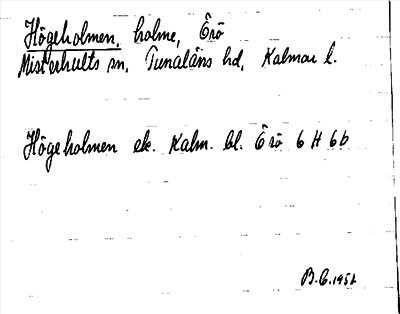 Högeholmen, holme, Örö
Misterhults sn, Tunaläns hd, Kalmar l.
Högeholmen ek. Kalm. bl. Örö 6 H 6b